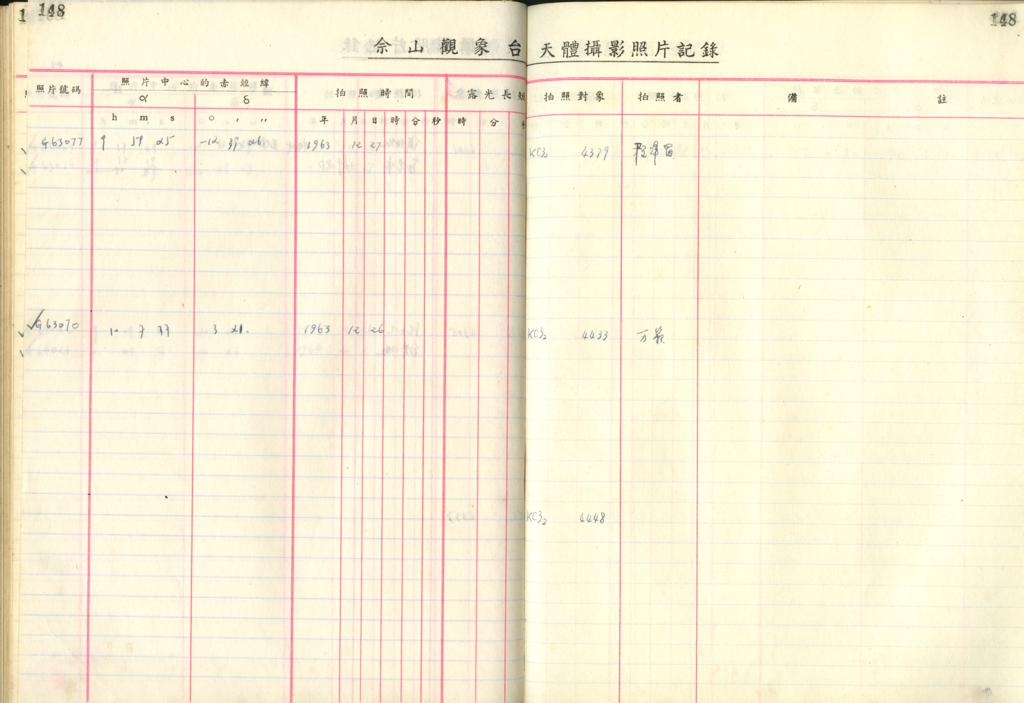 148 148
佘山觀象台天體攝影照片記錄
照片號碼 照片中心的赤經緯 拍照時間 露光長短 拍照對象 拍照者 備註
α δ
h m s ° ′ ″ 年月日時分秒 時分
G63077 9 59 25 -12 39 26 1963 12 27 KC32 4379
G63070 10 7 1963 12 26 KC32 4433
KC32 4448